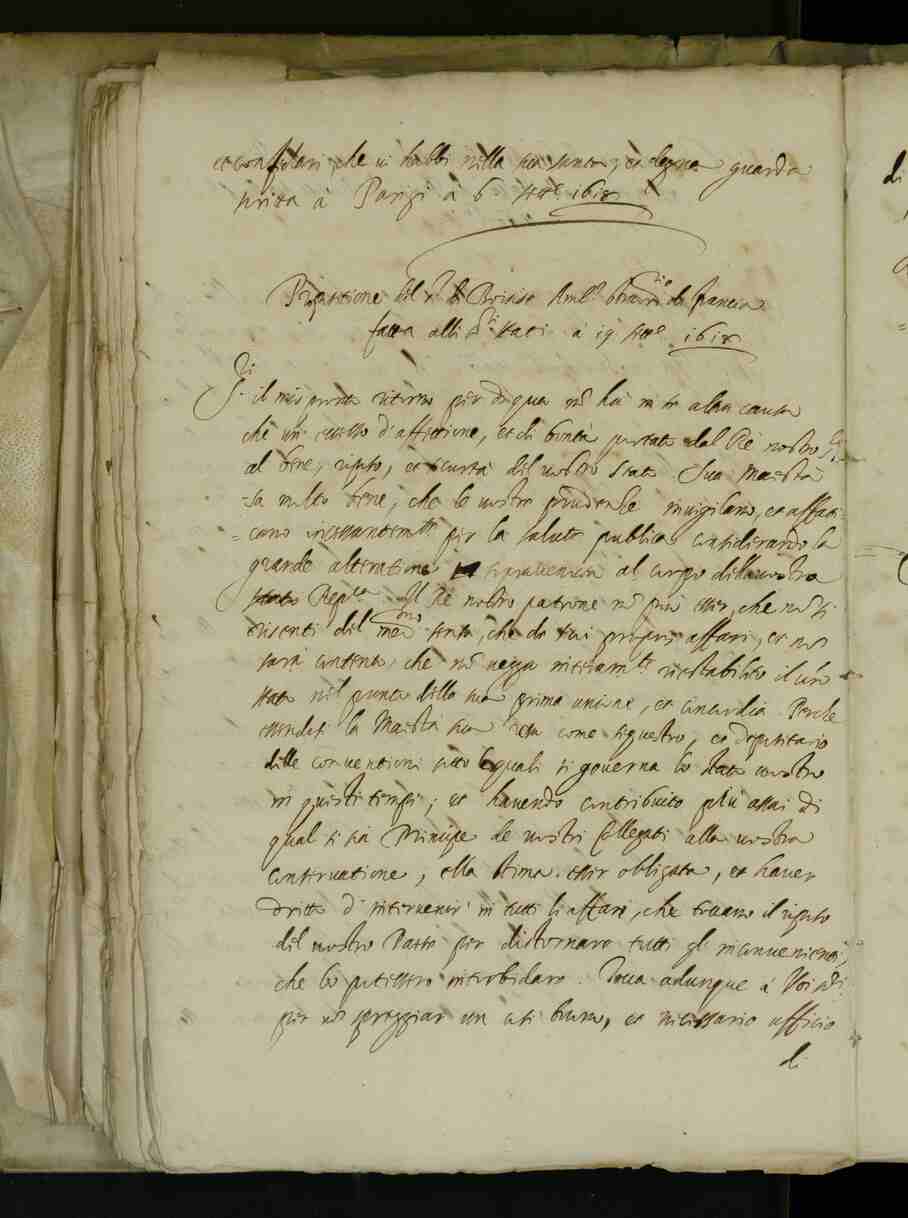 et consolari, che vi habbi nella sua santa, et degna guarda
scritta à Parigi à 6. Sett.e 1618
Propositione del S.r di Boisise Amb.r straord.rio di francia
fatta alli SS.ri Stati à 19 Sett.e 1618
SS.ri il mio pronto ritorno per di qua nõ hà in se altra causa
che un eccesso d'affettione, et di bontà portata dal Rè nostro S.re
al bene, riposo, et scurtà del vostro stato. Sua Maestà
sa molto bene, che le vostre prudenze invigilano, et affati-
=cano incessantem.te per la salute publica considerando la
grande alteratione sopravenuta al corpo della vostra
Rep.ca Il Rè nostro patrone nõ può esser, che nõ si
risenti del med.mo senso, che de suoi proprij affari, et nõ
sarà contento, che nõ vegga interam.te ristabilito il vr̃o
stato nel punto della sua prima unione, et concordia. Perche
essendo la Maestà sua resa come sequestro, et depositario
delle conventioni sotto le quali si governa lo stato vostro
in questi tempi; et havendo contribuito più assai di
qual si sia Principe de vostri Collegati alla vostra
conservatione, ella stima esser obligata, et haver
dritto d'intervenir in tutti li affari, che toccano il riposo
del vostro Stato per distornare tutti gl'inconvenienti,
che lo potessero intorbidare. Tocca adunque à Voi SS.ri
per nõ spreggiar un così buono, et necessario ufficio
di